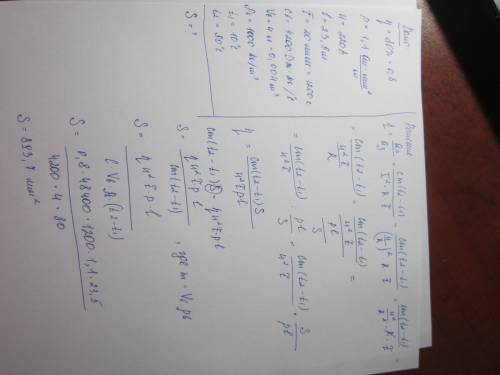 Дано:
η = 80% = 0,8
ρ = 1,1 Ом·мм²/м
U = 220 В
l = 23,5 м
T = 20 мин = 1200 с
c = 4200 Дж·кг/°c
V = 4 л = 0,004 м³
ρ = 1000 кг/м³
t₁ = 10°c
t₂ = 90°c
S = ?
Решение
η = Qп/Qз = cm(t₂-t₁)/I²·R·T = cm(t₂-t₁)/(u/R)²·R·T = cm(t₂-t₁)/u²/R²·R·T =
= cm(t₂-t₁)/u²T/R = cm(t₂-t₁)/u²T/ρl/S =
= cm(t₂-t₁)/u²T · ρl/S = cm(t₂-t₁)/u²T · S/ρl
η = cm(t₂-t₁)S/u²Tρl
cm(t₂-t₁)S = η u²Tρl
S = η u²·T·ρ·l/cm(t₂-t₁) , где m = Vρ
S = η u²T·ρ·l/c·V·ρ·(t₂-t₁)
S = 0,8·48400·1200·1,1·23,5/4200·4·80
S = 893,7 мм²